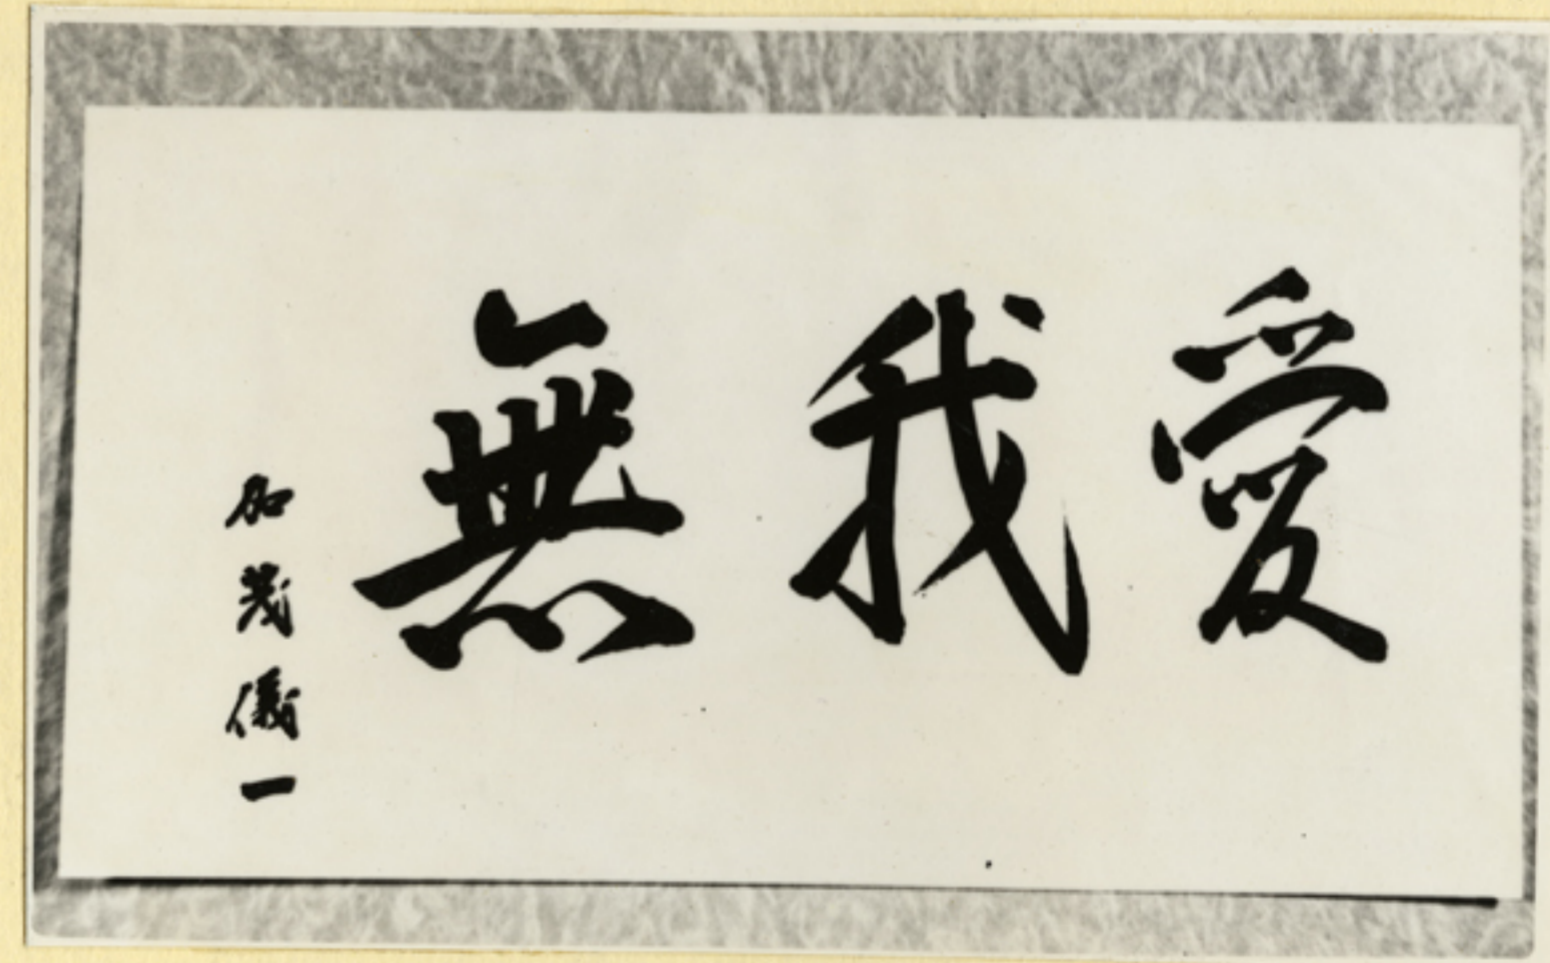 愛我無
加茂儀一